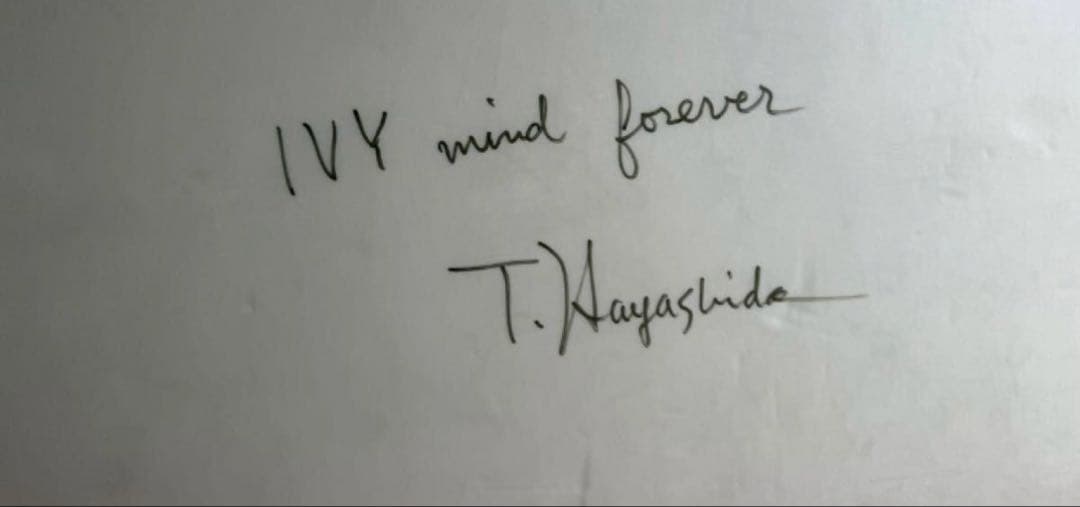 IVY mind forever
T. Hayashida